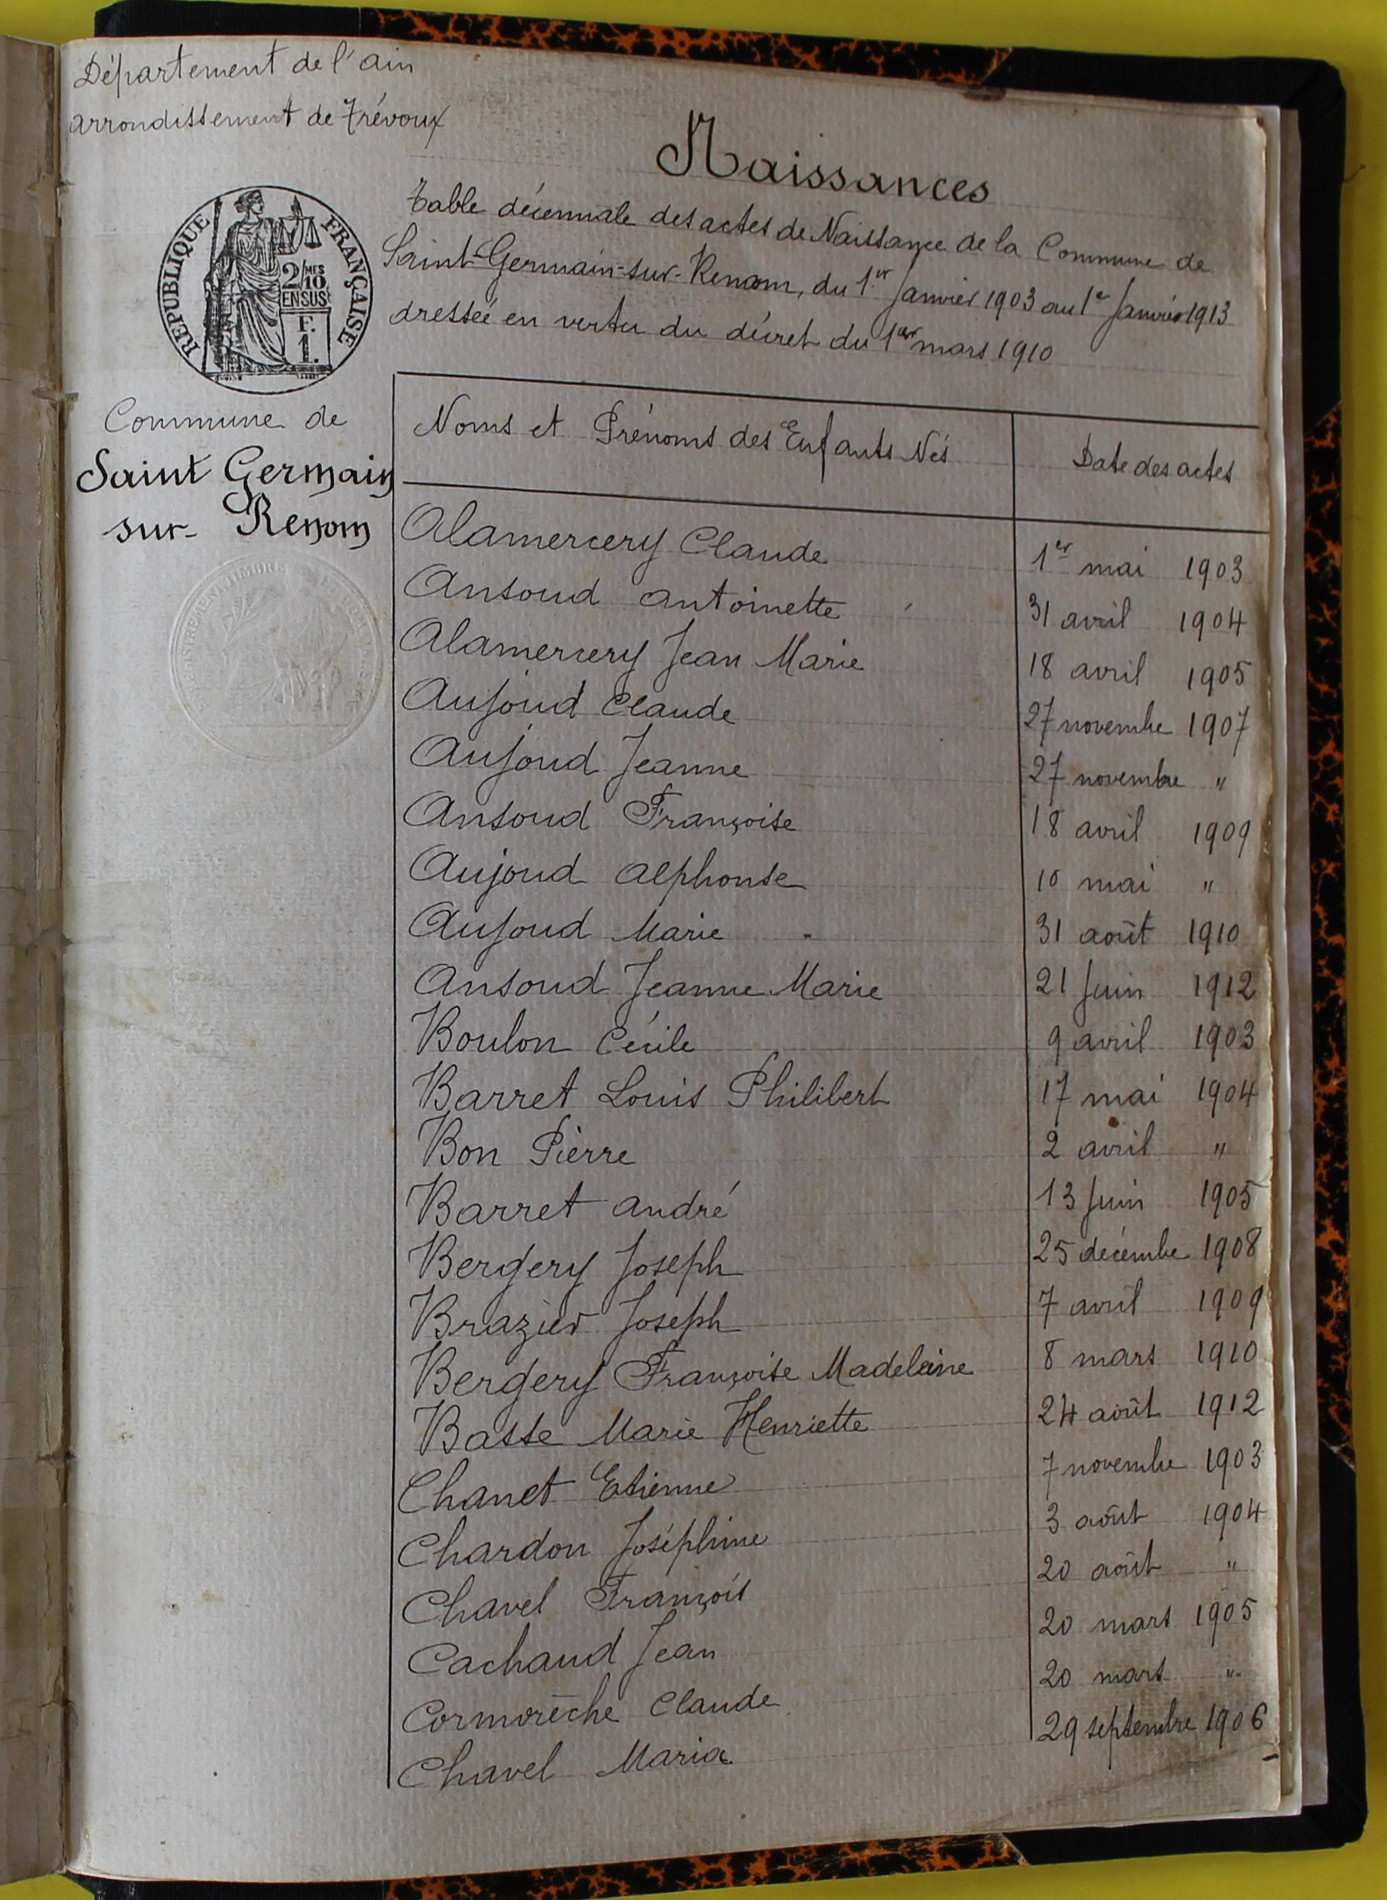 Département de l'ain
arrondissement de Trévoux
Naissances
Table décennale des actes de Naissance de la Commune de
Saint-Germain-sur-Renom, du 1er Janvier 1903 au 1er Janvier 1913
dressée en vertu du décret du 1er mars 1910
REPUBLIQUE FRANÇAISE
2/MES
10
EN SUS
F.
1.
Commune de
Saint Germain
sur- Renom
Noms et Prénoms des Enfants Nés Date des actes
Alamercery Claude 1er mai 1903
Ansoud antoinette 31 avril 1904
Alamercery Jean Marie 18 avril 1905
Aujoud Claude 27 novembre 1907
Aujoud Jeanne 27 novembre "
Ansoud Françoise 18 avril 1909
Aujoud Alphonse 10 mai "
Aujoud Marie 31 août 1910
Ansoud Jeanne Marie 21 Juin 1912
Boulon Cécile 9 avril 1903
Barret Louis Philibert 17 mai 1904
Bon Pierre 2 avril "
Barret andré 13 Juin 1905
Bergery Joseph 25 décembre 1908
Brazier Joseph 7 avril 1909
Bergery Françoise Madeleine 8 mars 1910
Basse Marie Henriette 24 août 1912
Chanet Etienne 7 novembre 1903
Chardon Joséphine 3 août 1904
Chavel François 20 août "
Cachaud Jean 20 mars 1905
Cormorèche Claude 20 mars "
Chavel Maria 29 septembre 1906